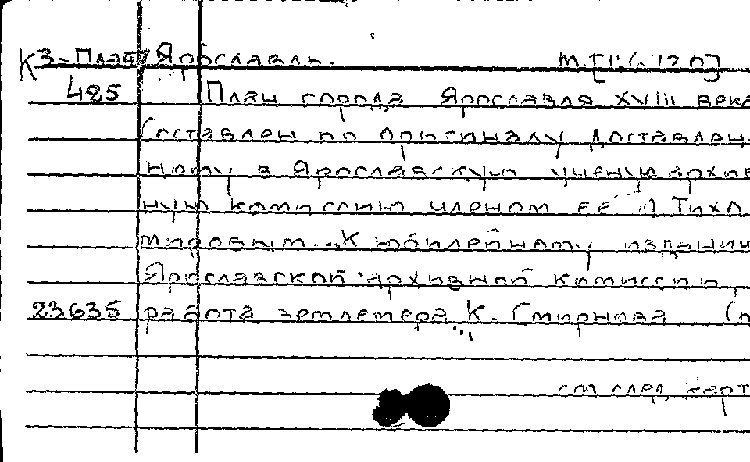 К3-План Ярославль. М. [1:4.120]
425 План города Ярославля XVIII века
Составлен по оригиналу доставлен-
ному в Ярославскую ученую архив
ную комиссию членом её Тихо
мировым. К юбилейному издынию
Ярославской архивной комиссии,
23635 работа землемера К. Смирнова
см след. карт